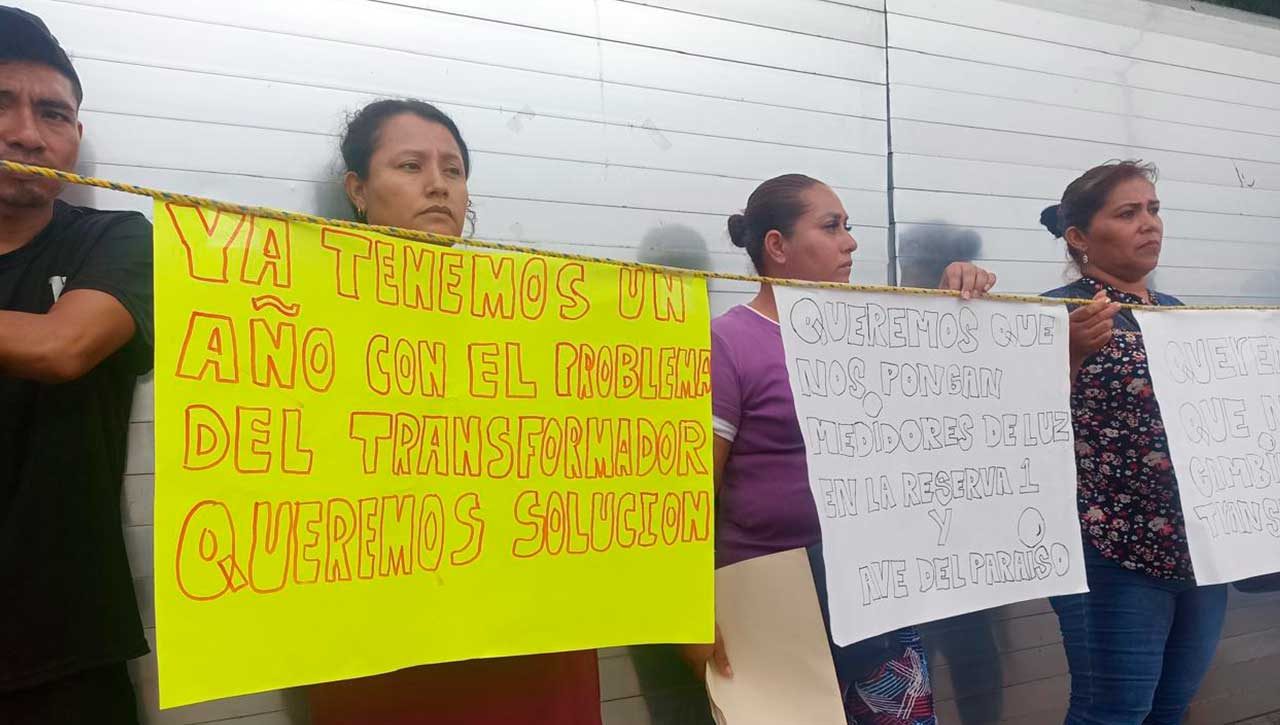 YA TENEMOS UN
AÑO CON EL PROBLEMA
DEL TRANSFORMADOR
QUEREMOS SOLUCION
QUEREMOS QUE
NOS PONGAN
MEDIDORES DE LUZ
EN LA RESERVA 1
Y
AVE DEL PARAISO
QUE